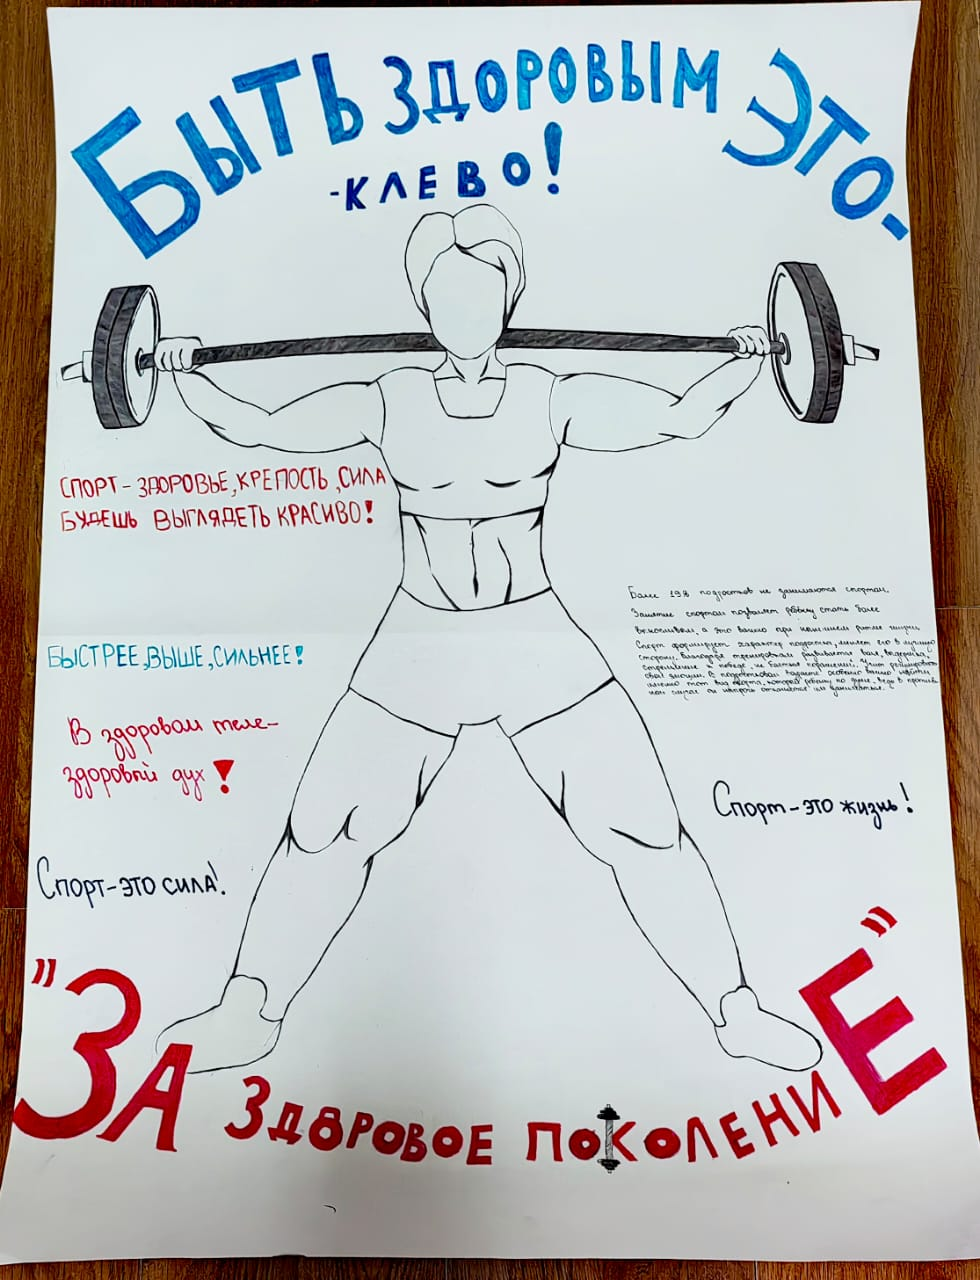 БЫТЬ ЗДОРОВЫМ ЭТО-
-КЛЕВО!
СПОРТ - ЗДОРОВЬЕ, КРЕПОСТЬ, СИЛА
БУДЕШЬ ВЫГЛЯДЕТЬ КРАСИВО!
Более 198 подростков не занимаются спортом.
Занятие спортом позволяет ребёнку стать более
выносливым, а это важно при нынешнем ритме жизни.
Спорт формирует характер подростка, меняет его в лучшую
сторону. Благодаря тренировкам развивается воля, выдержка,
стремление к победе, не бояться поражений. Учит регулировать
свои эмоции. В подростковом возрасте особенно важно найти
именно тот вид спорта, который ребёнку по душе, ведь в против-
ном случае он наотрез откажется им заниматься.
БЫСТРЕЕ, ВЫШЕ, СИЛЬНЕЕ!
В здоровом теле-
здоровый дух!
Спорт-это жизнь!
СПОРТ-ЭТО СИЛА!
"ЗА ЗДОРОВОЕ ПОКОЛЕНИЕ"